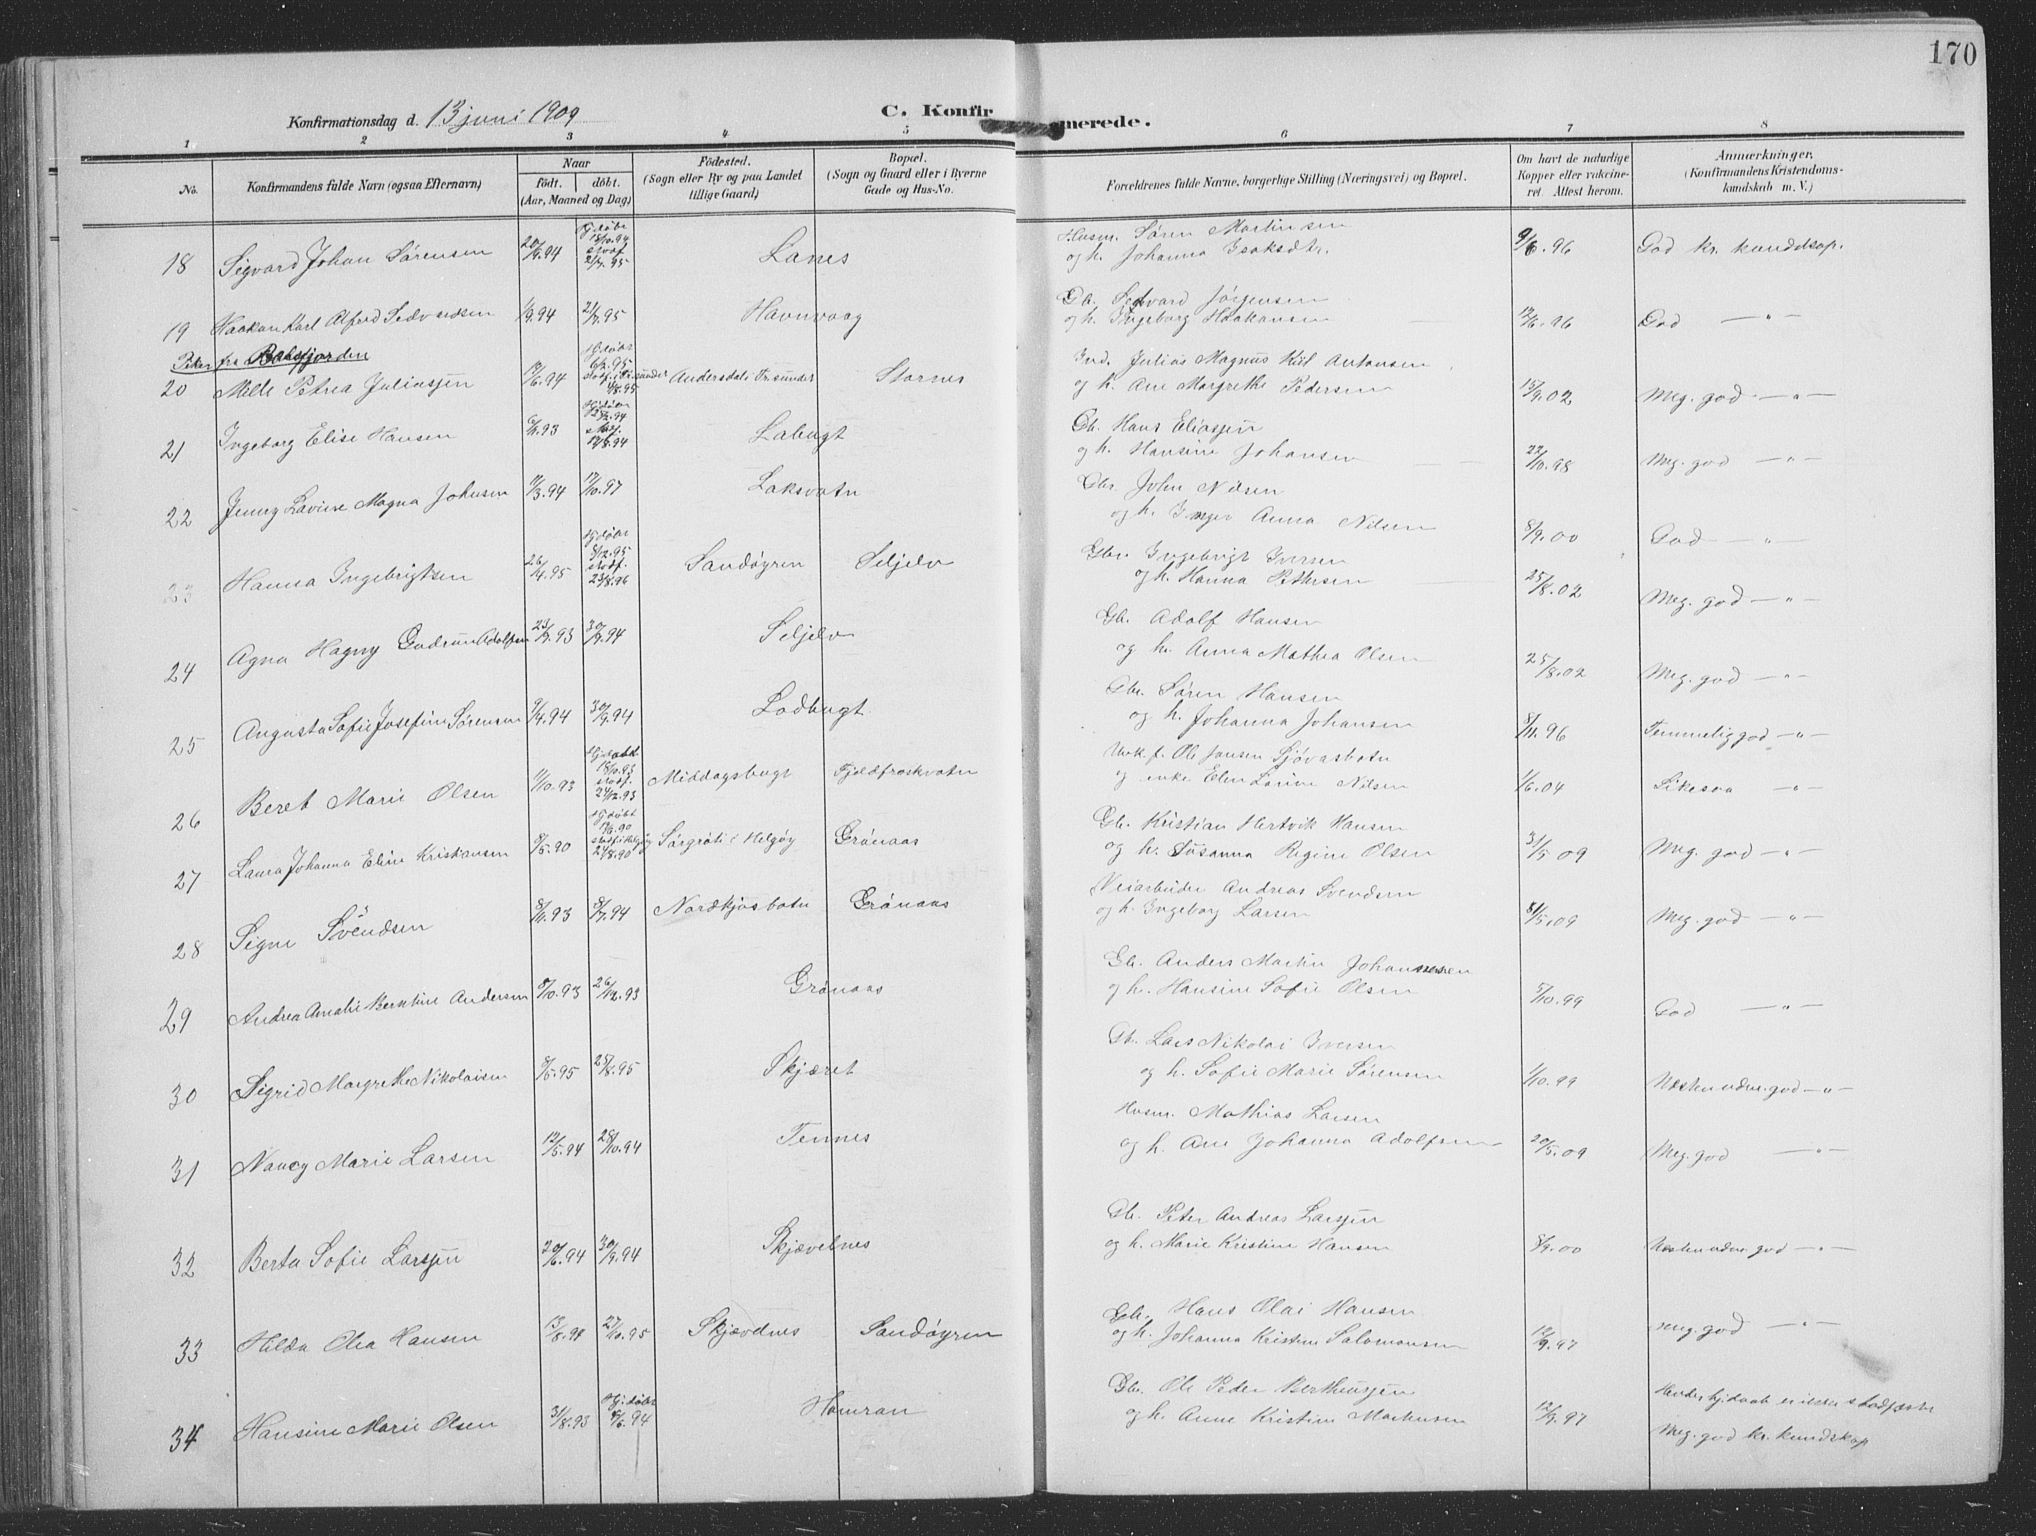 170
Konfirmationsdag d. 13 juni 1909
C. Konfirmerede.
1 2 3 4 5 6 7 8
No.
Konfirmandens fulde Navn (ogsaa Efternavn)
Naar
født. døbt.
(Aar, Maaned og Dag)
Fødested.
(Sogn eller By og paa Landet
tillige Gaard)
Bopæl.
(Sogn og Gaard eller i Byerne
Gade og Hus-No.
Forældrenes fulde Navne, borgerlige Stilling (Næringsvei) og Bopæl.
Om havt de naturlige
Kopper eller vakcine-
ret. Attest herom.
Anmærkninger.
(Konfirmandens Kristendoms-
kundskab m. V.)
18 Sigvard Johan Sørensen
Hjdøbt
18/10.94
stadf.
21/7.95
Lanes
Husm. Søren Martinsen
og h. Johanna Isaksdtr.
9/6.96
God kr. kunddsap.
19 Haakon Karl Alfred Sedvardsen 1/9.94 21/7.95 Havnvaag
Gb. Sedvard Jørgensen
og h. Ingeborg Haakansen
12/6.96 God — " —
Piker fra Balsfjorden
20 Mille Petrea Juliussen
Andersdal i Tr.sundet Stornes
Ind. Julius Magnus Kiil Antonsen
og h. Ane Margrethe Pedersen
15/9.02 Meg. god — " —
21 Ingeborg Elise Hansen
Labugt
Gb. Hans Eliassen
og h. Hansine Johansen
22/10.98 Meg. god — " —
22 Jenny Lavise Magna Johnsen 11/3.94 17/10.97 Laksvatn
Gbr. John Nilsen
og h. Inger Anna Nilsen
8/9.00 God — " —
23 Hanna Ingebrigtsen 26/4.95
Hjdøbt
8/12.95
stadf.
23/8.96
Sandøyren Seljelv
Gbr. Ingebrigt Iversen
og h. Hanna Pettersen
25/8.02 Meg. god — " —
24 Agna Hagny Gudrun Adolfsen 23/9.93 30/9.94 Seljelv
Gb. Adolf Hansen
og h. Anna Mathea Olsen
25/8.02 Meg. god — " —
25 Augusta Sofie Josefine Sørensen 9/4.94 30/9.94 Ladbugt
Gbr. Søren Hansen
og h. Johanna Johansen
8/11.96 Temmelig god — " —
26 Beret Marie Olsen 11/10.93
18/10.93
stadf.
24/12.93
Middagsbugt Fjeldfroskvatn
Unk. f. Ole Jansen Sjøvasbotn
og enke Elen Larine Nilsen
1/6.04 Likesaa — " —
27 Laura Johanna Eline Kristiansen 8/5.90
Hjdøbt
stadf i Helgøy
24/8.90
Sørgrøti i Helgøy Grønaas
Gb. Kristian Hertvik Hansen
og h. Susanna Regine Olsen
31/5 09 Meg. god — " —
28 Signe Svendsen 8/11.93 8/7.94 Nordkjosbotn Grønaas
Veiarbeider Andreas Svendsen
og h. Ingeborg Larsen
8/5.09 Meg. god — " —
29 Andrea Amalie Berntine Andersen 8/10.93 26/12.93 Grønaas
Gb. Anders Martin Johannesen
og h. Hansine Sofie Olsen
5/10.99 God — " —
30 Sigrid Margrethe Nikolaisen 8/5.95 25/8.95 Skjæret
Gb. Lars Nikolai Iversen
og h. Sofie Marie Sørensen
1/10.99 Næsten udm. god — " —
31 Nancy Marie Larsen 12/5.94 28/10.94 Tennes
Husm. Mathias Larsen
og h. Ane Johanna Adolfsen
20/5.09 Meg. god — " —
32 Berta Sofie Larssen 20/6.94 30/9.94 Skjævelnes
Gb. Peter Andreas Larssen
og h. Marie Kristine Hansen
8/9.00 Næsten udm. god — " —
33 Hilda Olea Hansen 13/8.94 27/10.95 Skjævelnes Sandøyren
Gb. Hans Olai Hansen
og h. Johanna Kristine Salamonsen
12/9.97 Meg. god — " —
34 Hansine Marie Olsen 31/8.93
Hjdøbt
9/6.94
Homran
Gbr. Ole Peder Bertheussen
og h. Anne Kristine Markussen
12/9.97
Hendes hjdaab er ikke stadfæstet
Meg. god kr. kundskap